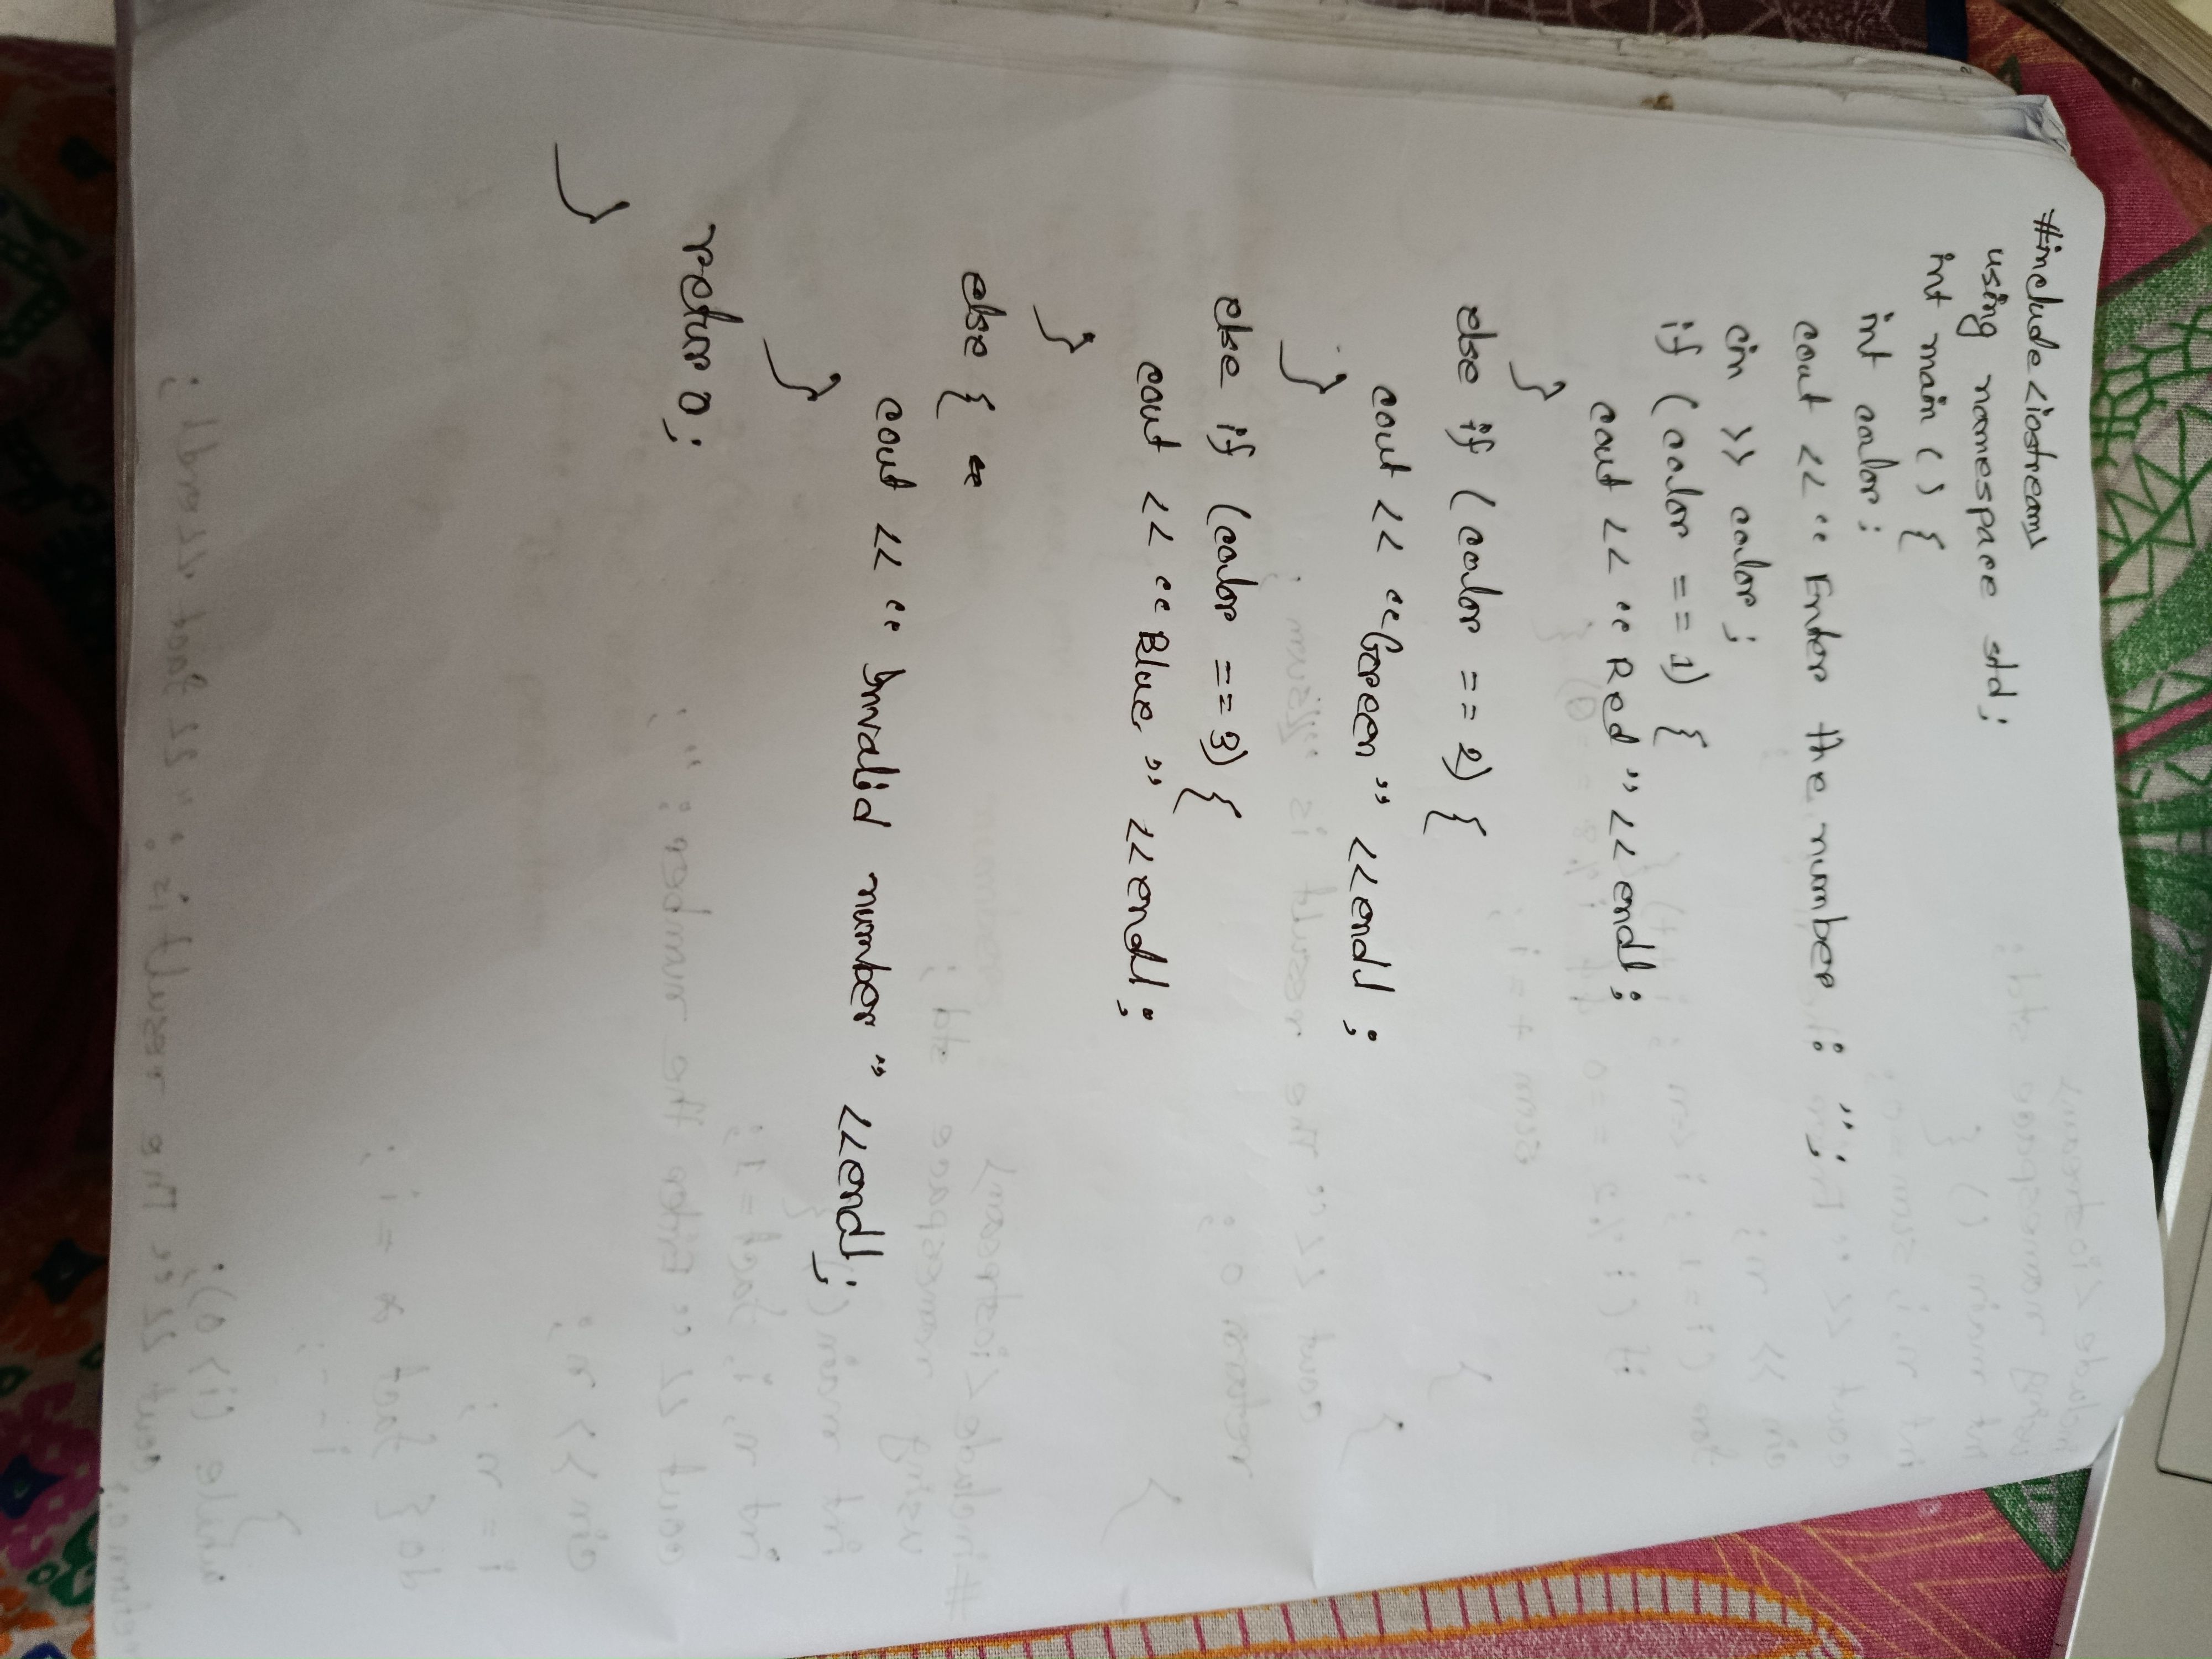 #include<iostream>
using namespace std;
int main () {
int color;
cout << "Enter the number: ";
cin >> color;
if (color == 1) {
cout << "Red" << endl;
}
else if (color == 2) {
cout << "Green" << endl;
}
else if (color == 3) {
cout << "Blue" << endl;
}
else {
cout << "Invalid number" << endl;
}
retur 0;
}